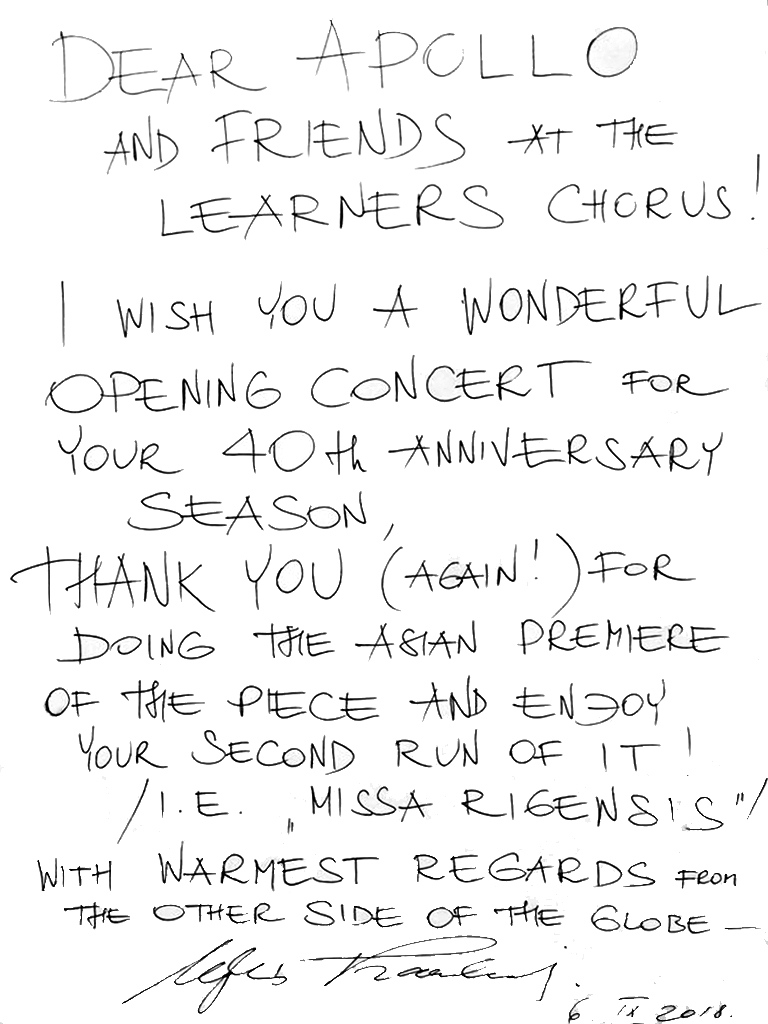 DEAR APOLLO
AND FRIENDS AT THE
LEARNERS CHORUS!
I WISH YOU A WONDERFUL
OPENING CONCERT FOR
YOUR 40th ANNIVERSARY
SEASON,
THANK YOU (AGAIN!) FOR
DOING THE ASIAN PREMIERE
OF THE PIECE AND ENJOY
YOUR SECOND RUN OF IT!
/I.E. „MISSA RIGENSIS"/
WITH WARMEST REGARDS FROM
THE OTHER SIDE OF THE GLOBE –
6 IX 2018.